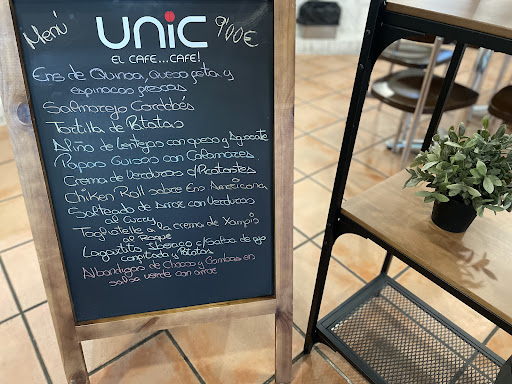 Menú
UNIC
9'00€
EL CAFE...CAFE!
Ens de Quinoa, queso feta y
espinacas frescas
Salmorejo Cordobés
Tortilla de Patatas
Aliño de Lentejas con queso y Aguacate
Papas Guisos con Calamares
Crema de Verduras c/Picatostes
Chiken Roll sobre Ens Americana
Salteado de Arroz con Verduras
al Curry
Tagliatelle a la crema de Xampis
al Roque
Lagartito Iberico c/salsa de ajo
confitado y Patatas
Albondigas de Choco y Gambas en
salsa verde con arroz